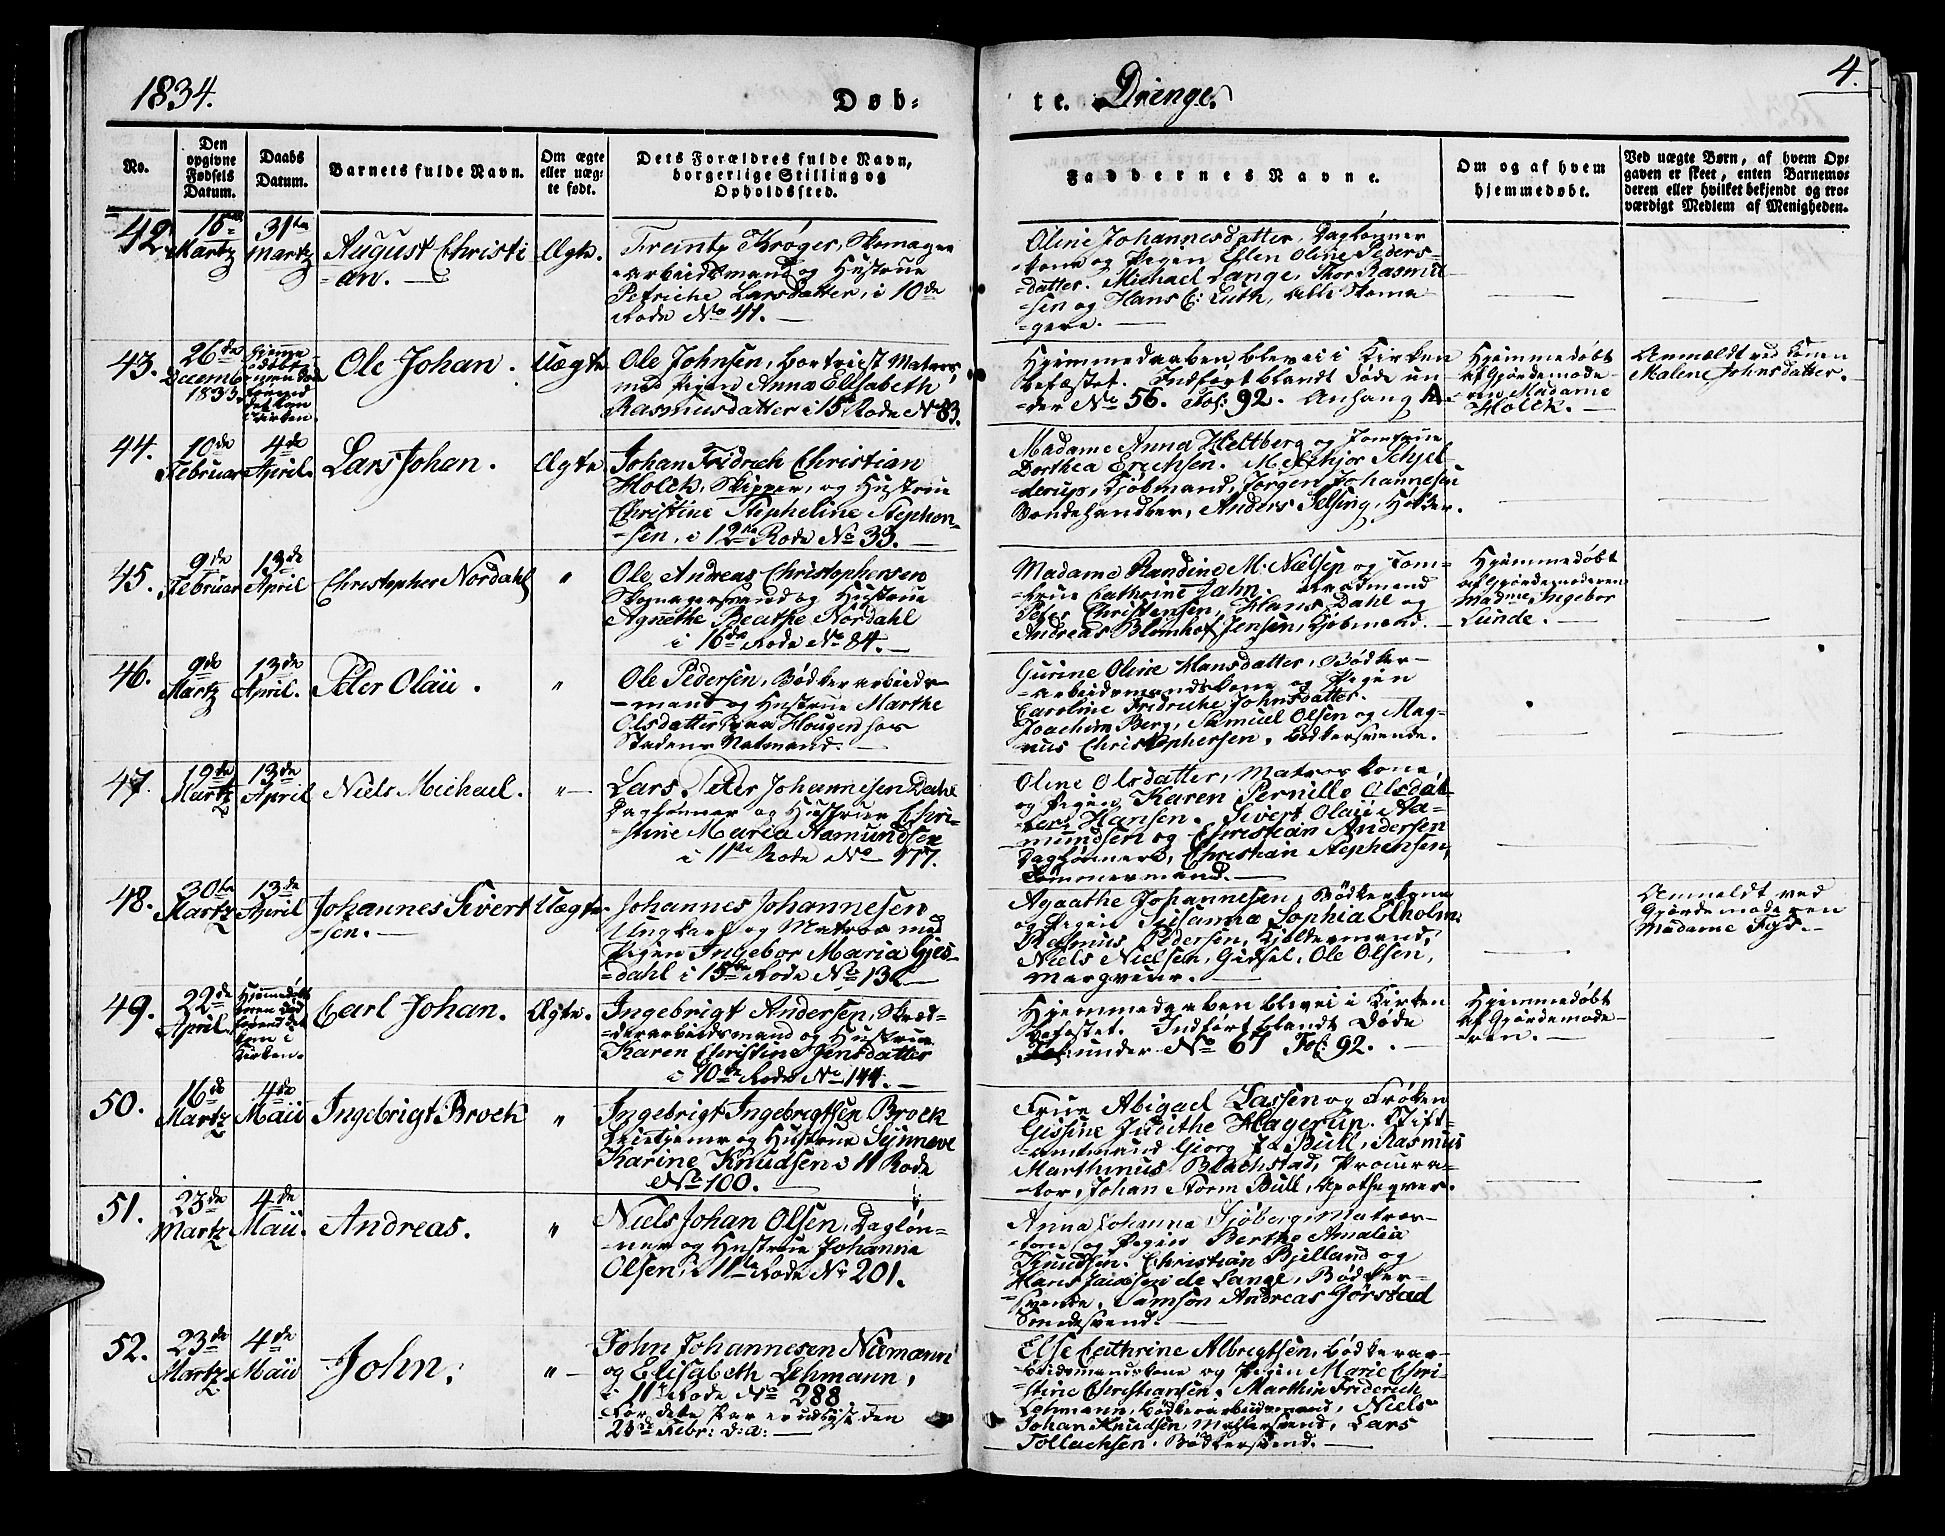 1834.
Døb-
te. Drenge.
4.
No.
Den opgivne Fødsels Datum.
Daabs Datum.
Barnets fulde Navn.
Om ægte eller uægte født.
Dets Forældres fulde Navn, borgerlige Stilling og Opholdssted.
Faddernes Navne.
Om og af hvem hjemmedøbt.
Ved uægte Børn, af hvem Opgaven er skeet, enten Barnemoderen eller hvilket bekjendt og troværdigt Medlem af Menigheden.
42.
Martz
31te
Martz
August Christi
-an.
Ægte.
Krøger, Skomager
-arbeidsmand og Hustrue
Petriche Larsdatter, i 10de
Rode No 41.
Oline Johannesdatter, Dagløner
-kone og Pigen Ellen Oline Peders-
-datter. Michael Lange, Thor Rasmu
-sen og Hans C: Luth, alle Skoma
-gere.
43.
26de
Decemb
1833.
Ole Johan.
Uægte
Ole Johnsen, bortreist Matros,
med Pigen Anna Elisabeth
Rasmusdatter i 15de Rode No 83.
Hjemmedaaben blev ei i Kirken
befæstet. Indført blandt døde un
-der No 56. Fol: 92. Anhang A.
Hjemmedøbt
af Gjordemode-
-ren Madame
Holck.
Anmeldt ved Konen
Malene Johnsdatter.
44.
10de
Februar
4de
April.
Lars Johan.
Ægte
Johan Fridrich Christian
Holck, Skipper, og Hustrue
Christine Stepheline Stephen-
-sen, i 12te Rode No 33.
Madame Anna Heltberg og Jomfrue
Dorthea Erichsen. Melchjor Schjel
-derup, Kjøbmand, Jørgen Johannesen
Bondehandler, Anders Selsing, Holder.
45.
9de
Februar
13de
April
Christopher Nordahl
"
Ole Andreas Christophersen
Skomagersvend og Hustrue
Agnethe Beathe Nordahl
i 16de Rode No 84.
Madame Randine M: Nielsen og Jom-
-frue Cathrine Jahn.
Peter Christensen, Hans Dahl og
Andreas Blomhof Jensen, Kjøbmænd.
Hjemmedøbt
af Gjordemoderen
Madme Ingebor
Lunde.
46.
9de
Martz
13de
April.
Peter Olaii.
"
Ole Pedersen, Bødkerarbeids-
-mand og Hustrue Marthe
Olsdatter paa Hougen hos
Stadens Natmand.
Gurine Oline Hansdatter, Bødker-
-arbeidsmandskone og Pigen
Caroline Fridriche Johnsdatter.
Joachim Berg, Samuel Olsen og Mag-
-nus Christophersen, Bødkersvende.
47.
19de
Martz
13de
April
Niels Michael.
"
Lars Peter Johannesen Dahl
Dagløner og Hustrue Chri-
-stine Maria Aamundsen
i 11te Rode No 177.
Oline Olsdatter, Matroskone,
og Pigen Karen Pernille Olsdat
-ter Hansen. Sivert Olaii Aa-
-mundsen og Christian Andersen
Dagløner, Christian Stephensen,
Tømmermand.
48.
30te
Martz
13de
April
Johannes Sivert
-sen.
Uægte
Johannes Johannesen
Ungkarl og Matros med
Pigen Ingebor Maria Gjes-
-dahl i 15de Rode No 13
Agaathe Johannesen, Bødkerkone
og Pigen Susanna Sophia Elholm.
Rasmus Pedersen, Kjeldermand,
Niels Nielsen, Gidsel, Ole Olsen,
Anmeldt ved
Gjordemoderen
Madame
49.
22de
April.
Hjemmedøbt
Carl Johan.
Ægte.
Ingebrigt Andersen, Skræd-
-derarbeidsmand og Hustrue
Karen Christine Jensdatter
i 10de Rode No 144.
Hjemmedaaben blev ei i Kirken
befæstet. Indført blandt Døde
under No 67 Fol: 92.
Hjemmedøbt
af Gjordemode-
-ren.
50.
16de
Martz
4de
Maii
Ingebrigt Brock
"
Ingebrigt Ingebrigtsen Brock
og Hustrue Synneve
Karine Knudsen i 11 Rode
No 100.
Frue Abigael Lassen og Frøken
Gissine Judithe Hagerup. Stift-
-amtmand Georg J. Bull, Rasmus
Marthinus Blachstad, Procura-
-tor, Johan Storm Bull, Apotheqver.
51.
23de
Martz
4de
Maii.
Andreas.
"
Niels Johan Olsen, Dagløn-
-ner og Hustrue Johanne
Olsen, i 11te Rode No 201.
Anna Johanna Sjøberg, Matros-
-kone og Pigen Berthe Amalia
Knudsen. Christian Bjelland og
Hans Jacobsen de Lange, Bødker-
-svende, Samson Andreas Gjørstad
Smedesvend.
52.
23de
Martz
4de
Maii
John.
"
John Johannesen Niemann
og Elisabeth Lehmann,
i 11te Rode No 288
Fordete Par er udlyst den
23de Febr: d:a:
Else Cathrine Albrigtsen, Bødkerar-
-beidsmandskone og Pigen Marie Chri-
-stine Christiansen. Marthin Friderich
Lehmann, Bødkerarbeidsmand, Niels
Johan Knudsen, Mallersvend, Lars
Tollachsen, Bødkersvend.